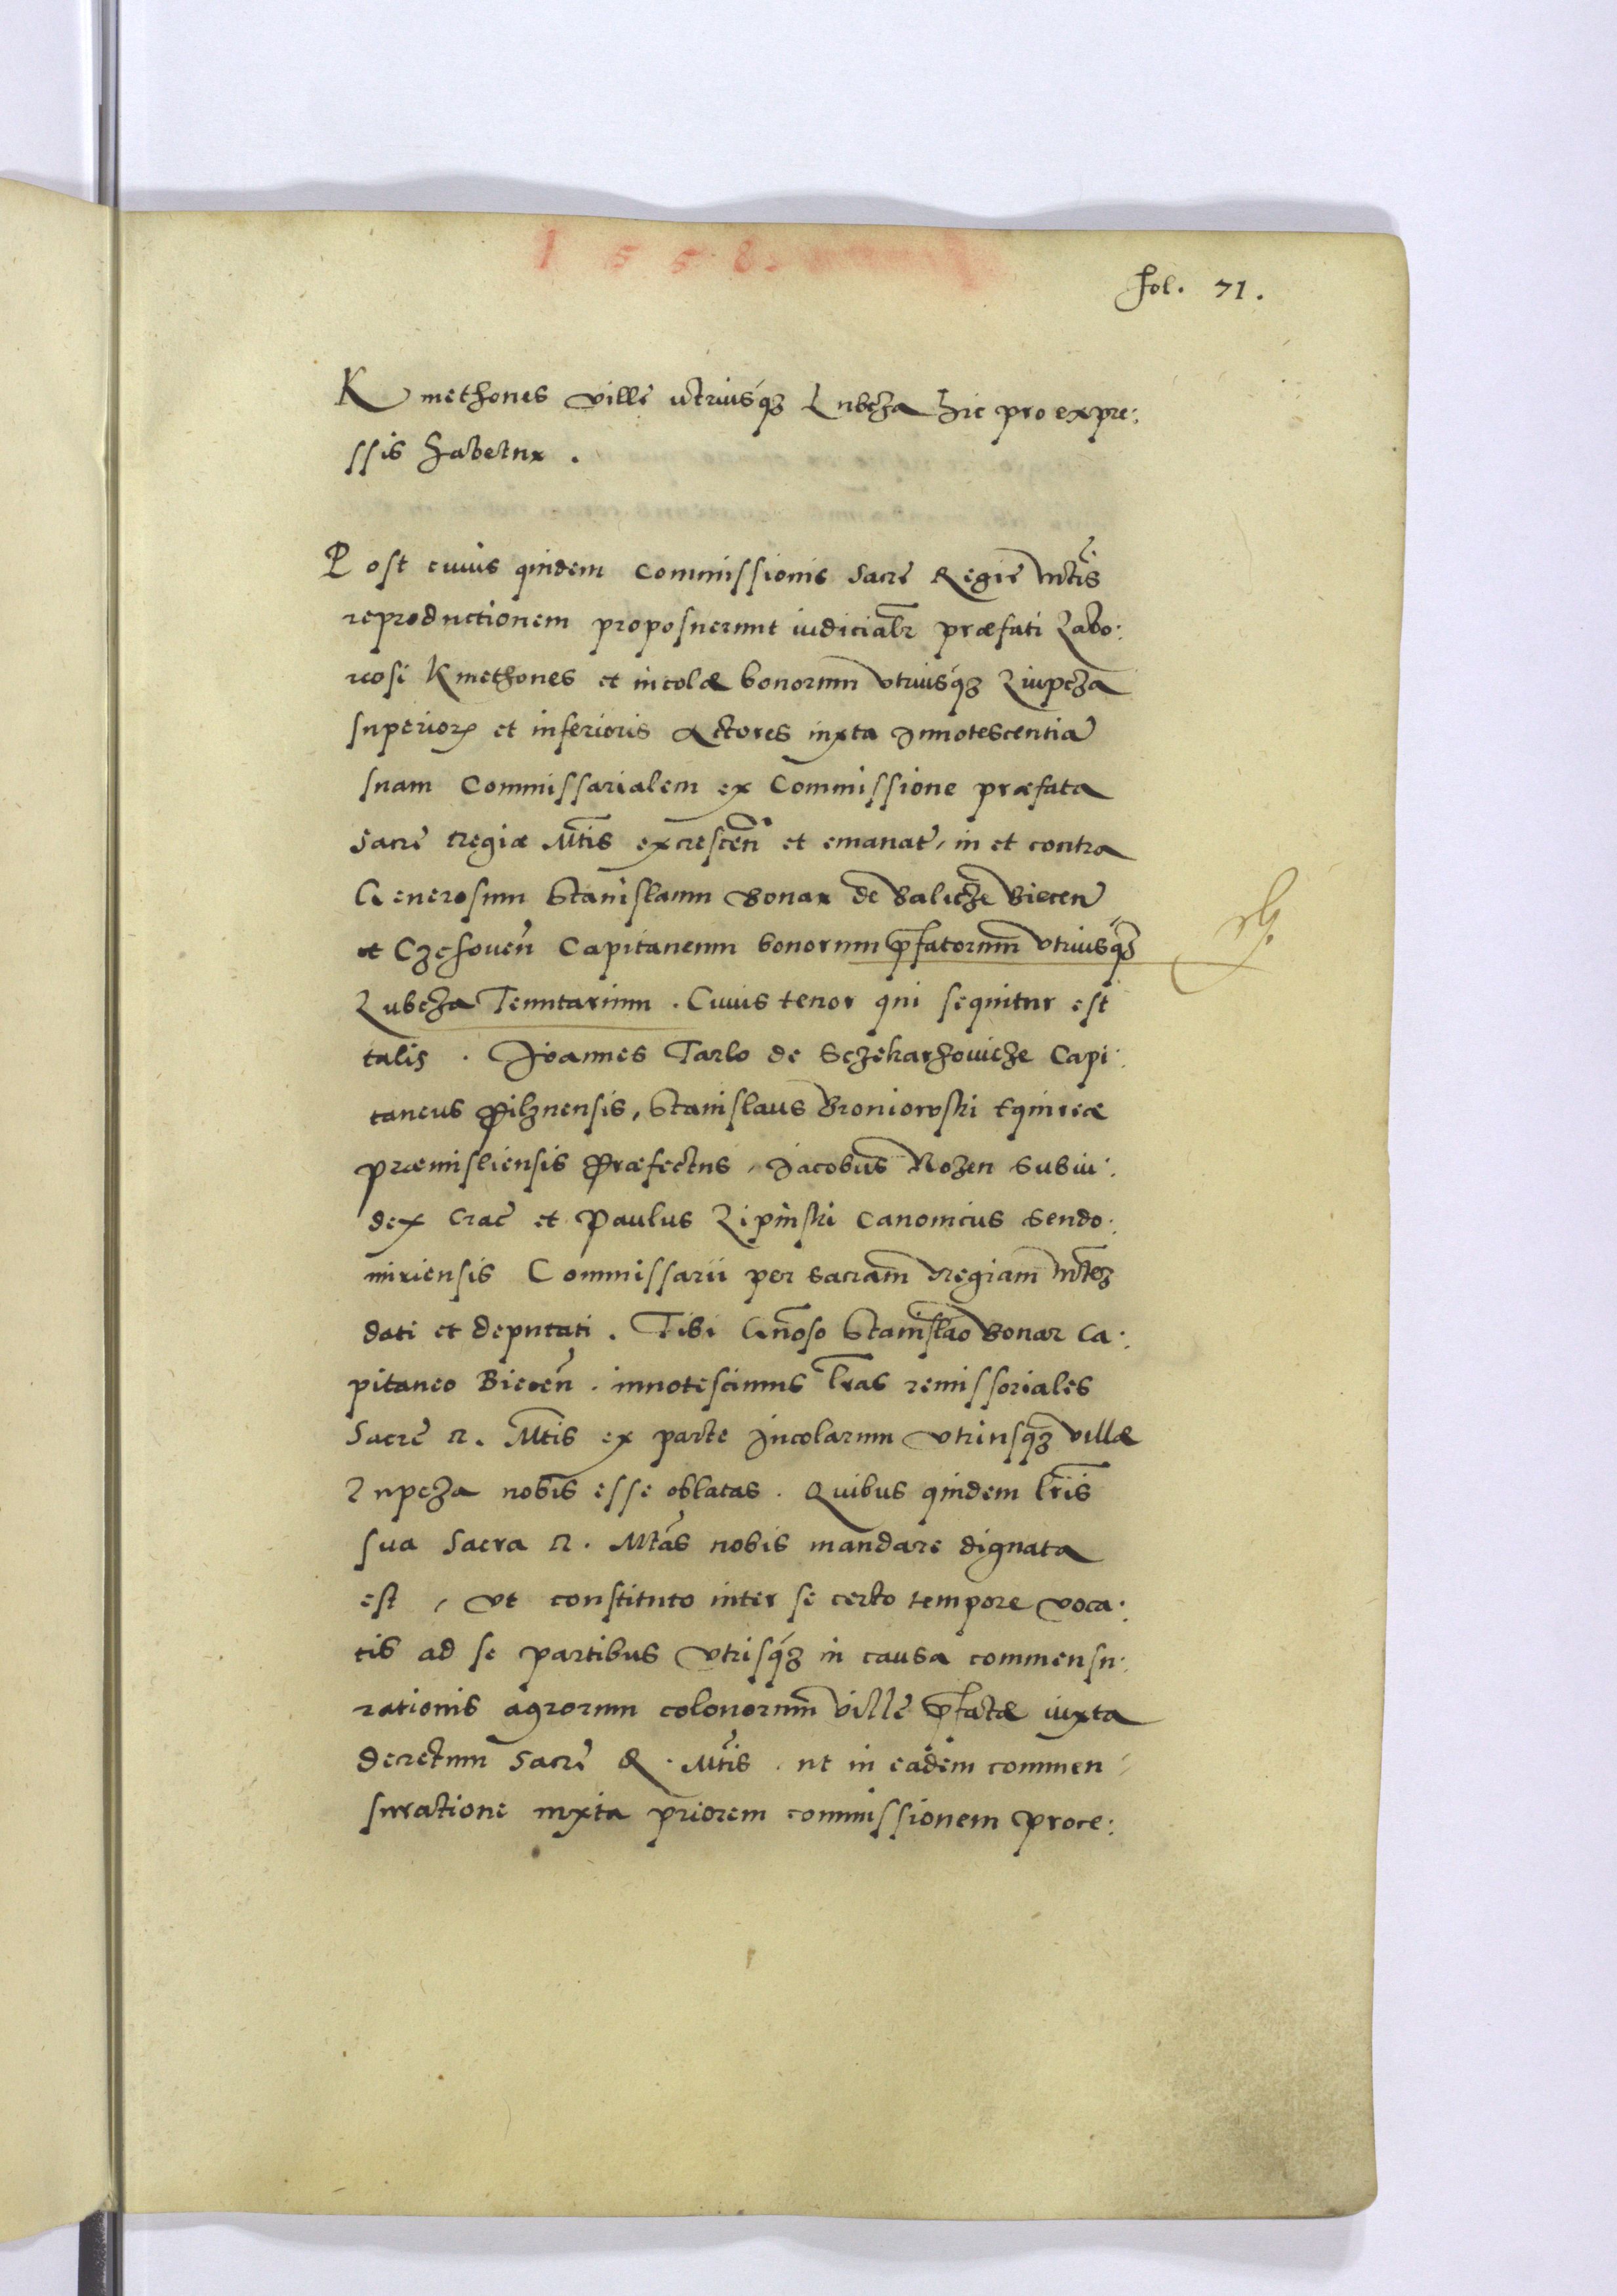 1558.
fol. 71.
Kmethones villę utriusq́ȝ Lubcza hic pro expre:
ssis habetur.
Post cuius quidem Commissionis Sacrę Regię Mtis
reproductionem proposuerunt iudicialr præfati Labo:
riosi Kmethones et incolæ bonorum vtriusq́ȝ Liupcza
superior et inferioris Actores iuxta Innotescentiā
suam Commissarialem ex Commissione præfata
Sacrę regiæ Mtis excrescen̄ et emanat, in et contra
Generosum Stanislaum Bonar de Balicze Biecen̄
et Czchoven̄ Capitaneum bonorum p̄fatorum vtriusq́ȝ
Lubcza Tenutarium. Cuius tenor qui sequitur est
talis. Joannes Tarlo de Sczekarzouicze Capi:
taneus Pilznensis, Stanislaus Broniowski Equireæ
præmisliensis Præfectus, Jacobus Rozen Subiu:
dex Crac̄ et Paulus Lipinski Canonicus Sendo:
miriensis Commissarii per sacram regiam Mtēȝ
dati et deputati. Tibi Gnōso Stanislao Bonar Ca:
pitaneo Biecen̄. innotescimus lr̄as remissoriales
Sacrę R. Mtis ex parte Incolarum vtriusqȝ villæ
Lupcza nobis esse oblatas. Quibus quidem lr̄is
sua Sacra R. Mtās nobis mandare dignata
est, vt constituto inter se certo tempore voca:
tis ad se partibus vtrisq́ȝ in causa commensu:
rationis agrorum colonorum villę p̄fatæ iuxta
decretum Sacrę R. Mtis. ut in eadem commen
suratione iuxta priorem commissionem proce: